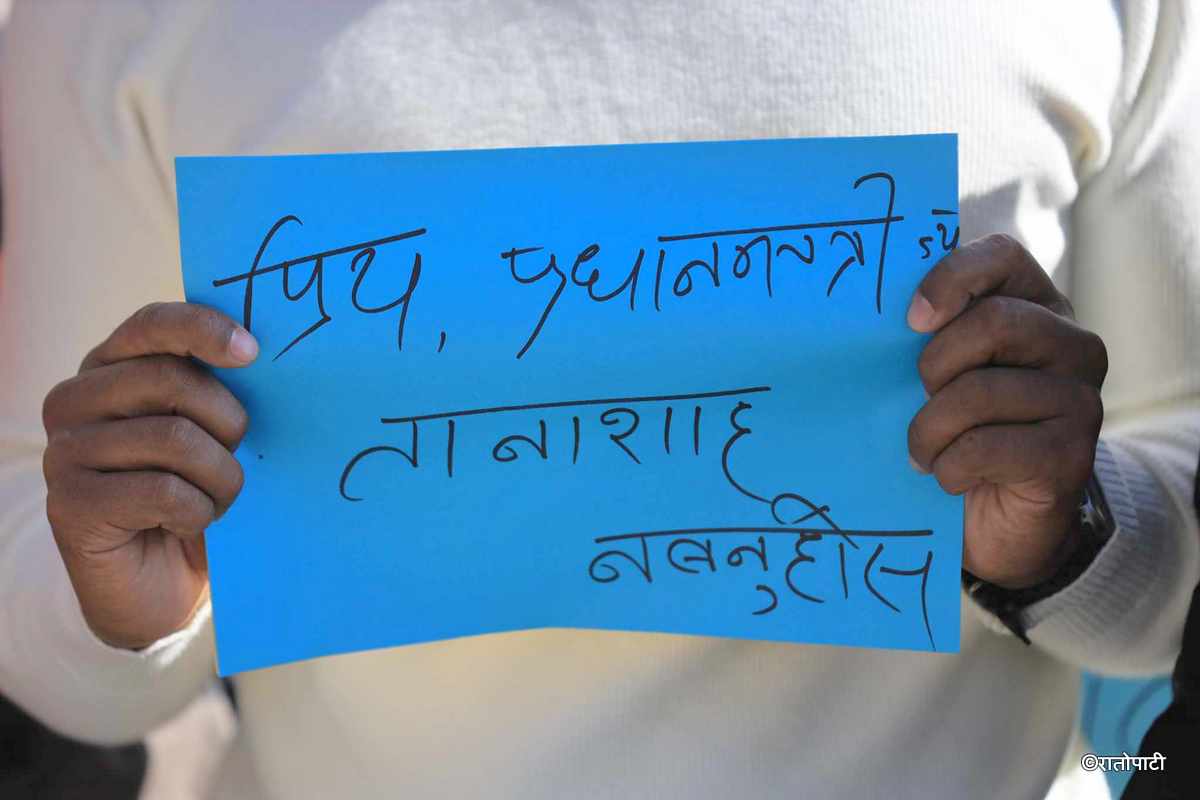 प्रिय, प्रधानमन्त्री
तानाशाह
नबन्नुहोस
©रातोपाटी